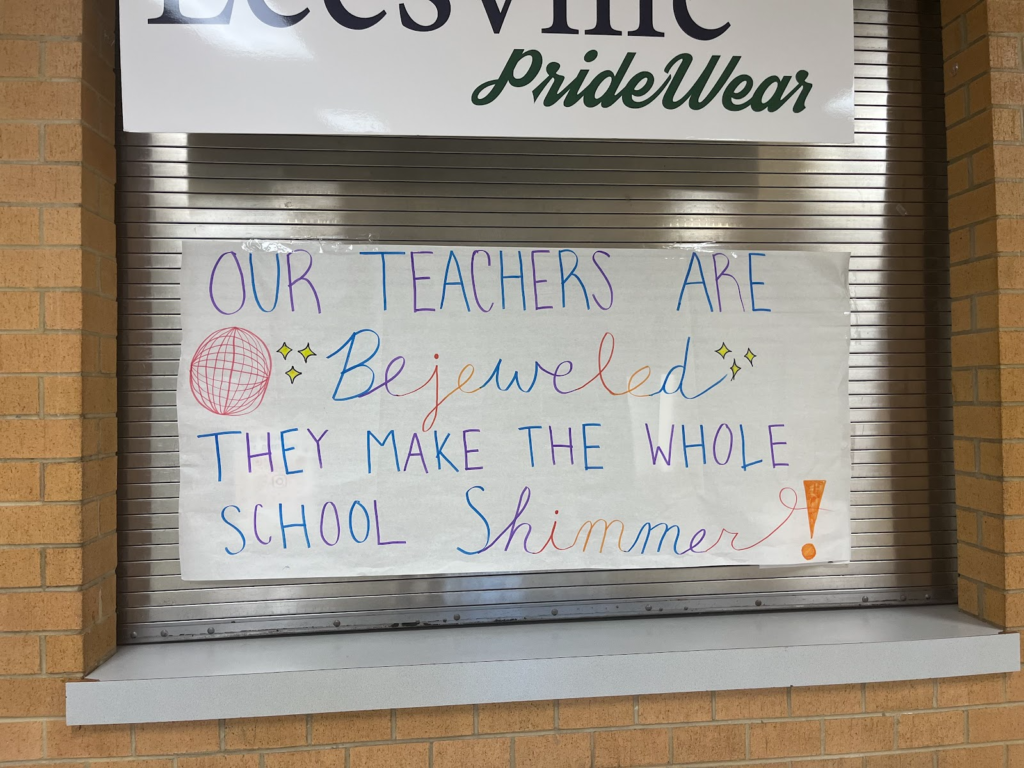 Leesville
PrideWear
OUR TEACHERS ARE
Bejeweled
THEY MAKE THE WHOLE
SCHOOL Shimmer!